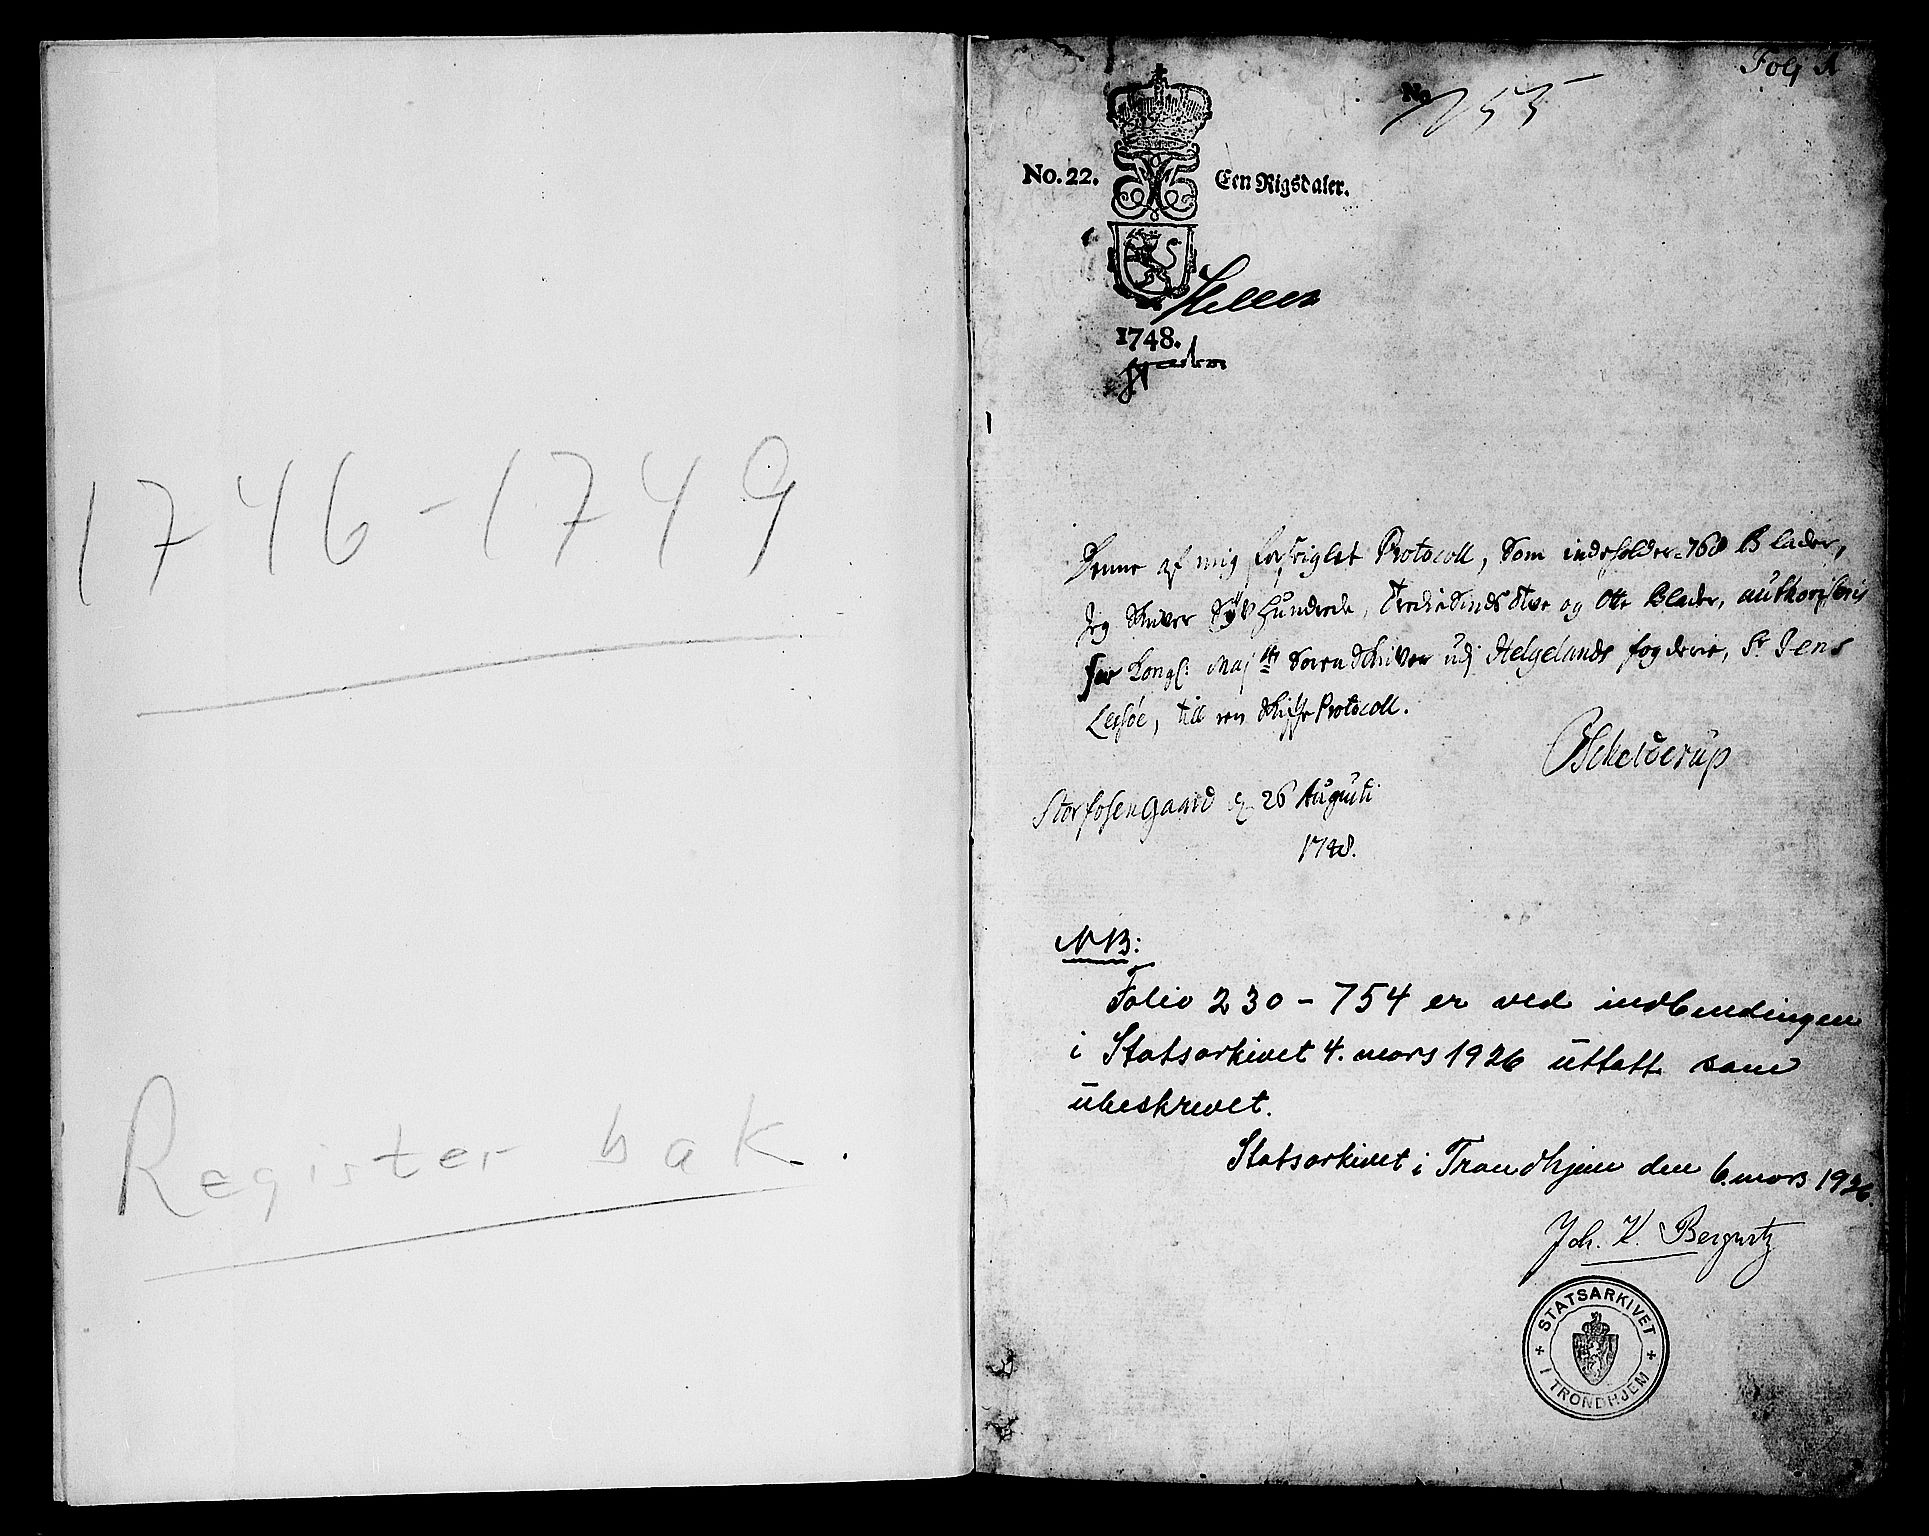 1746-1749
Register bak.
Folj 1
No
755
No. 22.
Een Rigsdaler.
1748.
Denne af mig forsiglet Protocoll, Som indeholder 768 Blader,
Jeg Skriver Syv Hundrede, Tredie Sinds Tive og Otte Blader, authoriseris
for Kongl: Maj:ts Sorenschriver udj Helgelands fogderie, Sr Jens
till en Skifte Protocoll.
BSchelderup
Storfosengaard d. 26 Augusti
1748.
NB:
Folio 230 - 754 er ved indbindingen
i Statsarkivet 4. mars 1926 uttatt som
ubeskrevet.
Statsarkivet i Trondhjem den 6. mars 1926
Joh. K. Bergwitz
STATSARKIVET
I TRONDHJEM